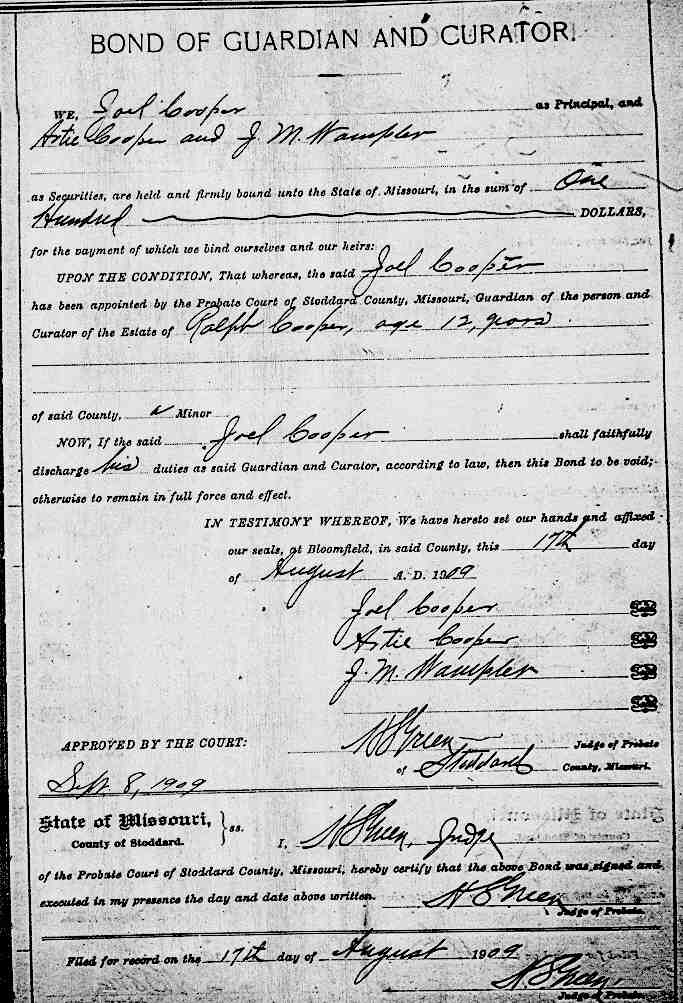 BOND OF GUARDIAN AND CURATOR.
WE, Joel Cooper as Principal, and
Artie Cooper and J. M. Wampler
as Securities, are held and firmly bound unto the State of Missouri, in the sum of One
Hundred DOLLARS,
for the payment of which we bind ourselves and our heirs:
UPON THE CONDITION, That whereas, the said Joel Cooper
has been appointed by the Probate Court of Stoddard County, Missouri, Guardian of the person and
Curator of the Estate of Ralph Cooper, age 12, years
of said County, a Minor
NOW, If the said Joel Cooper shall faithfully
discharge his duties as said Guardian and Curator, according to law, then this Bond to be void;
otherwise to remain in full force and effect.
IN TESTIMONY WHEREOF, We have hereto set our hands and affixed
our seals, at Bloomfield, in said County, this 17th day
of August A. D. 1909
Joel Cooper
Artie Cooper
J. M. Wampler
APPROVED BY THE COURT: Green Judge of Probate
of Stoddard County, Missouri.
Sept. 8, 1909
State of Missouri, } ss.
County of Stoddard. I, Green, Judge
of the Probate Court of Stoddard County, Missouri, hereby certify that the above Bond was signed and
executed in my presence the day and date above written. Green
Judge of Probate.
Filed for record on the 17th day of August 1909
Green
Judge of Probate.